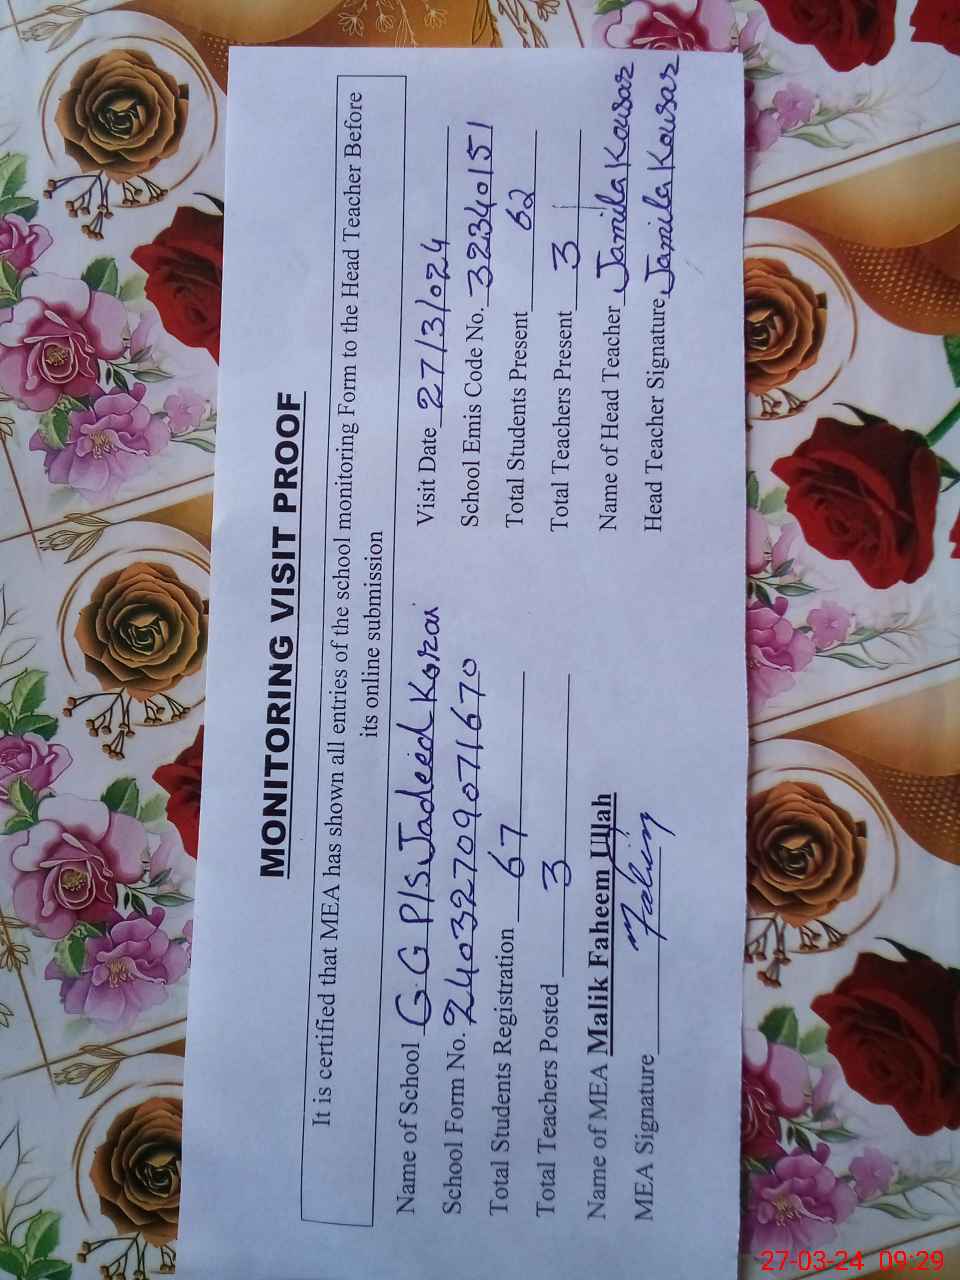 MONITORING VISIT PROOF
It is certified that MEA has shown all entries of the school monitoring Form to the Head Teacher Before
its online submission
Name of School G.G P/S Jadeed Korai Visit Date 27/3/024
School Form No. 2403270907 1670 School Emis Code No. 32340151
Total Students Registration 67 Total Students Present 62
Total Teachers Posted 3 Total Teachers Present 3
Name of MEA Malik Faheem Ullah Name of Head Teacher Jamila Kousar
MEA Signature Fahim Head Teacher Signature Jamila Kousar
27-03-24 09:29